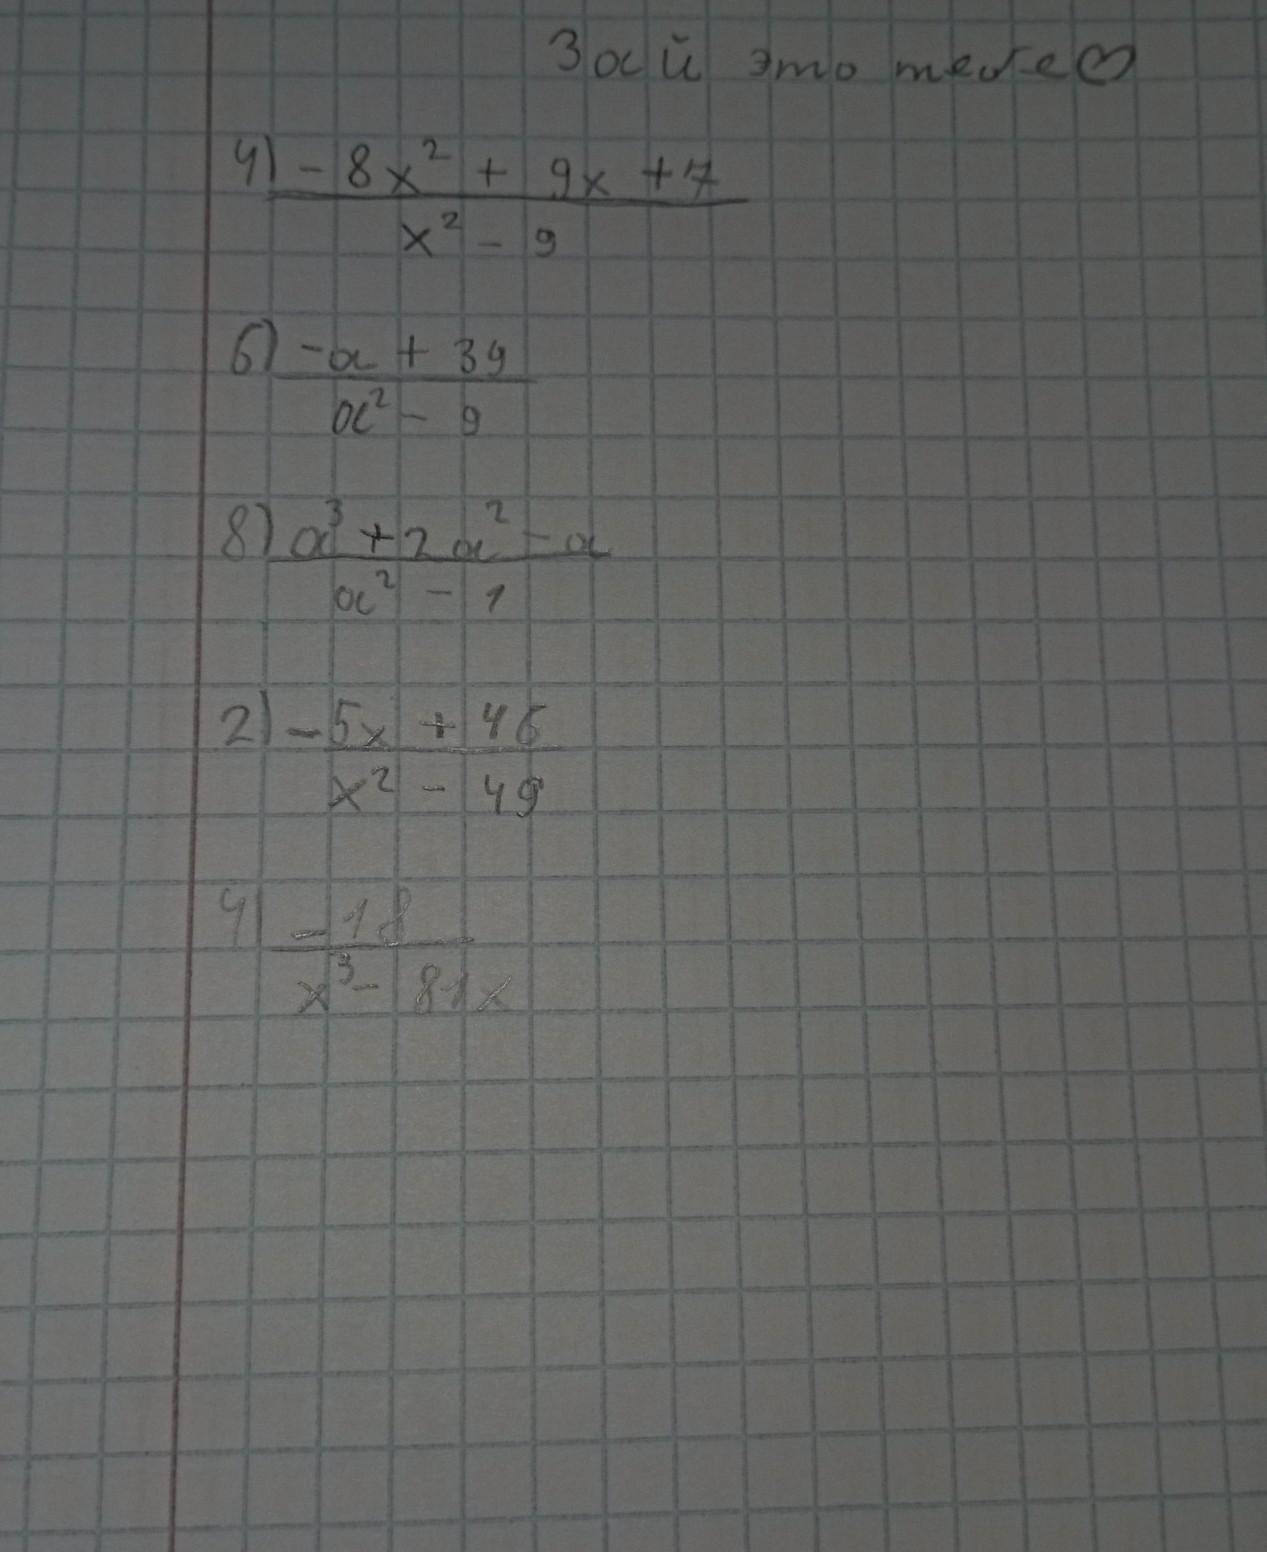 Зай это тебе♡
4) -8x² + 9x + 7
x² - 9
6) -a + 39
a² - 9
8) a³ + 2a² - a
a² - 1
2) -5x + 46
x² - 49
4) -18
x³ - 81x